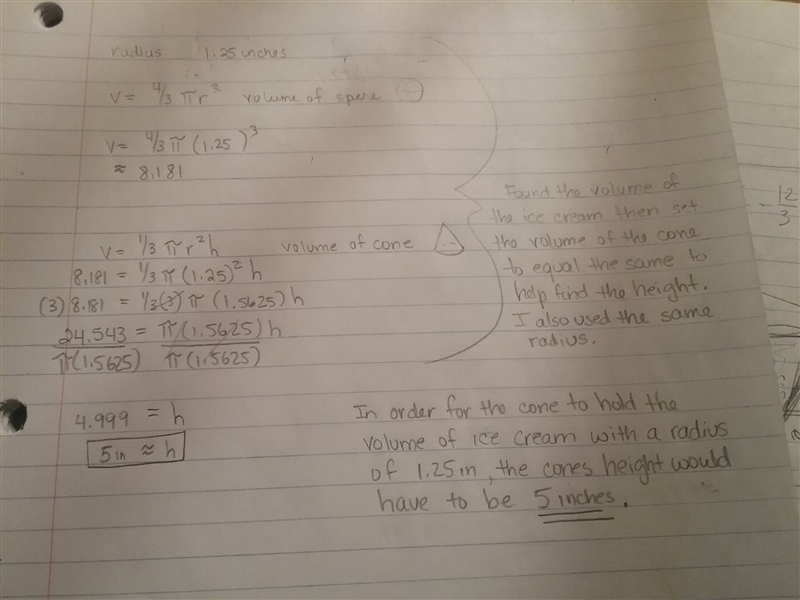 radius 1.25 inches
V = 4/3 πr³ volume of spere
V = 4/3 π (1.25)³
≈ 8.181
V = 1/3 πr²h volume of cone
8.181 = 1/3 π (1.25)² h
(3) 8.181 = 1/3(3) π (1.5625) h
24.543 = π(1.5625) h
π(1.5625) π(1.5625)
4.999 = h
5in ≈ h
Found the volume of
the ice cream then set
the volume of the cone
to equal the same to
help find the height.
I also used the same
radius.
In order for the cone to hold the
volume of ice cream with a radius
of 1.25in, the cones height would
have to be 5 inches.
- 12/3